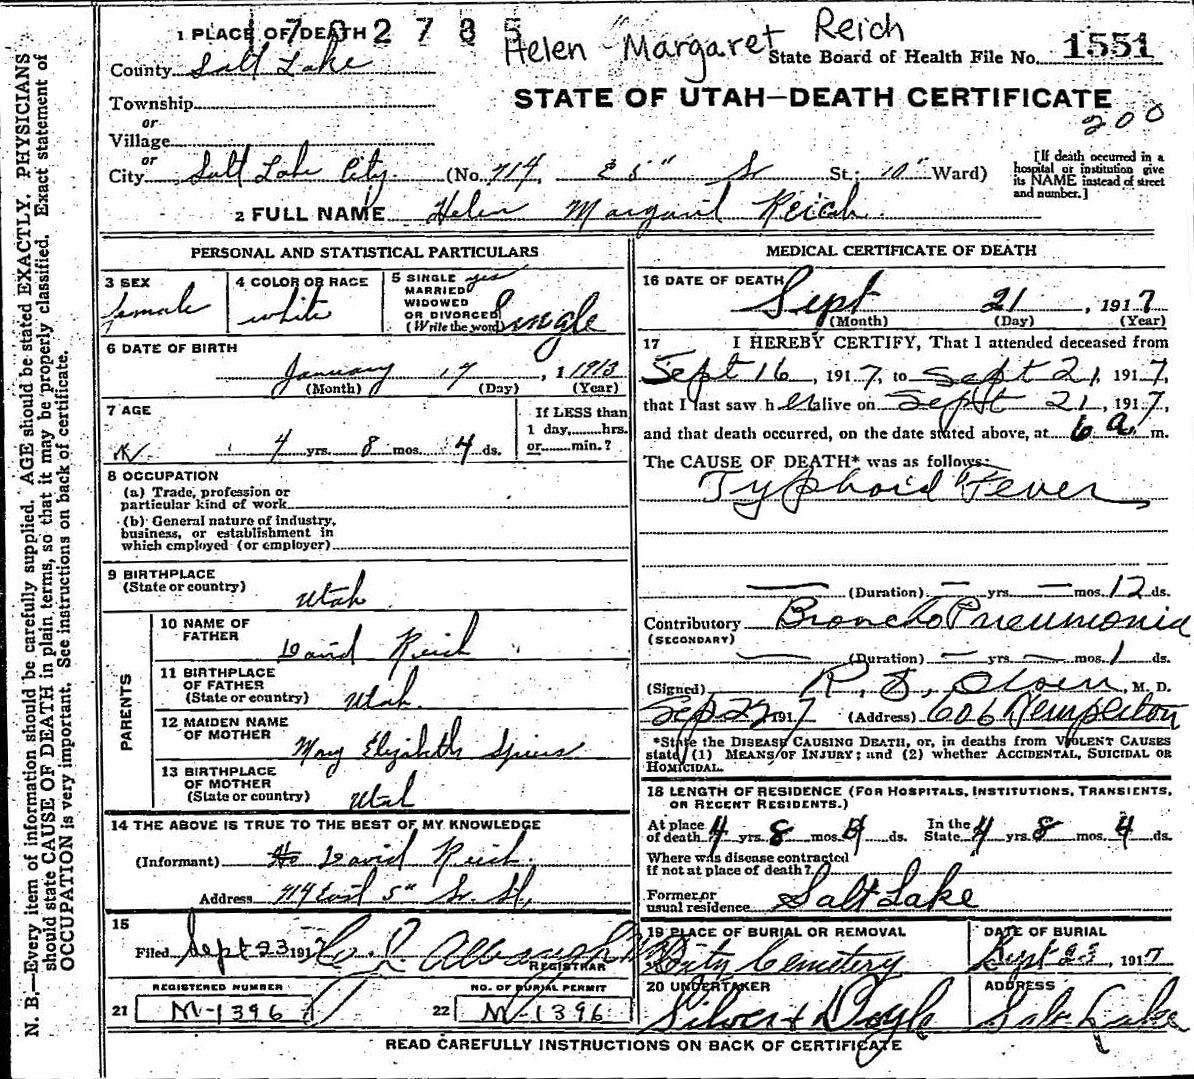 1702785
Helen Margaret Reich
1 PLACE OF DEATH
State Board of Health File No. 1551
County Salt Lake
STATE OF UTAH—DEATH CERTIFICATE
200
Township
or
Village
or
City Salt Lake City. (No. 714, E 5" So St; 10" Ward)
[If death occurred in a hospital or institution give its NAME instead of street and number.]
2 FULL NAME Helen Margaret Reich
PERSONAL AND STATISTICAL PARTICULARS
3 SEX female
4 COLOR OR RACE white
5 SINGLE yes
MARRIED
WIDOWED
OR DIVORCED
(Write the word) Single
6 DATE OF BIRTH
January 17, 1 1913
(Month) (Day) (Year)
7 AGE
4 yrs. 8 mos. 4 ds.
If LESS than
1 day, hrs.
or min.?
8 OCCUPATION
(a) Trade, profession or
particular kind of work
(b) General nature of industry,
business, or establishment in
which employed (or employer)
9 BIRTHPLACE
(State or country)
Utah
PARENTS
10 NAME OF
FATHER
David Reich
11 BIRTHPLACE
OF FATHER
(State or country) Utah.
12 MAIDEN NAME
OF MOTHER
Mary Elizabeth Spiers
13 BIRTHPLACE
OF MOTHER
(State or country) Utah
14 THE ABOVE IS TRUE TO THE BEST OF MY KNOWLEDGE
(Informant) David Reich.
Address 714 East 5" So. St,
15
Filed Sept 23 1917
REGISTRAR
REGISTERED NUMBER
21 M-1396
NO. OF BURIAL PERMIT
22 M-1396
MEDICAL CERTIFICATE OF DEATH
16 DATE OF DEATH
Sept 21, 1917
(Month) (Day) (Year)
17 I HEREBY CERTIFY, That I attended deceased from
Sept 16, 1917, to Sept 21, 1917,
that I last saw her alive on Sept 21, 1917,
and that death occurred, on the date stated above, at 6 a. m.
The CAUSE OF DEATH* was as follows:
Typhoid Fever
(Duration) — yrs. — mos. 12 ds.
Contributory Broncho Pneumonia
(SECONDARY)
(Duration) — yrs. — mos. 1 ds.
(Signed) R. S. Olsen, M. D.
Sep 22 1917 (Address) 606 Templeton
*State the DISEASE CAUSING DEATH, or, in deaths from VIOLENT CAUSES
state (1) MEANS OF INJURY; and (2) whether ACCIDENTAL, SUICIDAL OR
HOMICIDAL.
18 LENGTH OF RESIDENCE (FOR HOSPITALS, INSTITUTIONS, TRANSIENTS,
OR RECENT RESIDENTS.)
At place
of death 4 yrs. 8 mos. 4 ds. In the State 4 yrs. 8 mos. 4 ds.
Where was disease contracted
if not at place of death?
Former or
usual residence Salt Lake
19 PLACE OF BURIAL OR REMOVAL
City Cemetery
DATE OF BURIAL
Sept 23, 1917
20 UNDERTAKER
Silver & Doyle
ADDRESS
Salt Lake
READ CAREFULLY INSTRUCTIONS ON BACK OF CERTIFICATE
N. B.—Every item of information should be carefully supplied. AGE should be stated EXACTLY. PHYSICIANS
should state CAUSE OF DEATH in plain terms, so that it may be properly classified. Exact statement of
OCCUPATION is very important. See instructions on back of certificate.